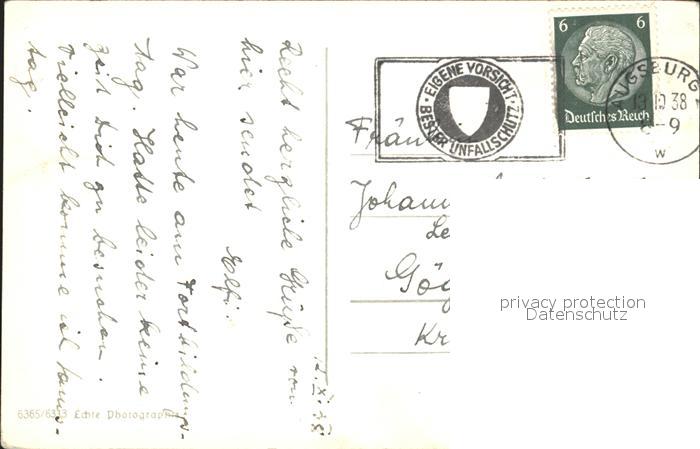 Recht herzliche Grüße von
hier sendet
Elfi.
War heute am Fortbildungs-
tag. Hatte leider keine
Zeit Dich zu besuchen.
Vielleicht komme ich Sams-
tag.
12. X. 38
6365/6313 Echte Photographie
EIGENE VORSICHT
BESTER UNFALLSCHUTZ
6 6
Deutsches Reich
AUGSBURG
13 10 38
8-9
w
Fräu
Johann
Le
Gög
Kr
privacy protection
Datenschutz